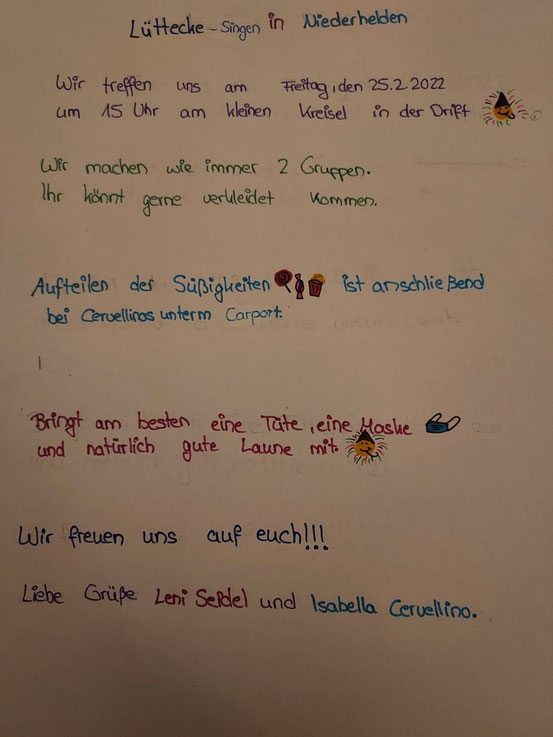 Lüttecke-Singen in Niederhelden
Wir treffen uns am Freitag, den 25.2.2022
um 15 Uhr am kleinen Kreisel in der Drift
Wir machen wie immer 2 Gruppen.
Ihr könnt gerne verkleidet kommen.
Aufteilen der Süßigkeiten ist anschließend
bei Cervellinos unterm Carport.
Bringt am besten eine Tüte, eine Maske
und natürlich gute Laune mit.
Wir freuen uns auf euch!!!
Liebe Grüße Leni Seidel und Isabella Cervellino.